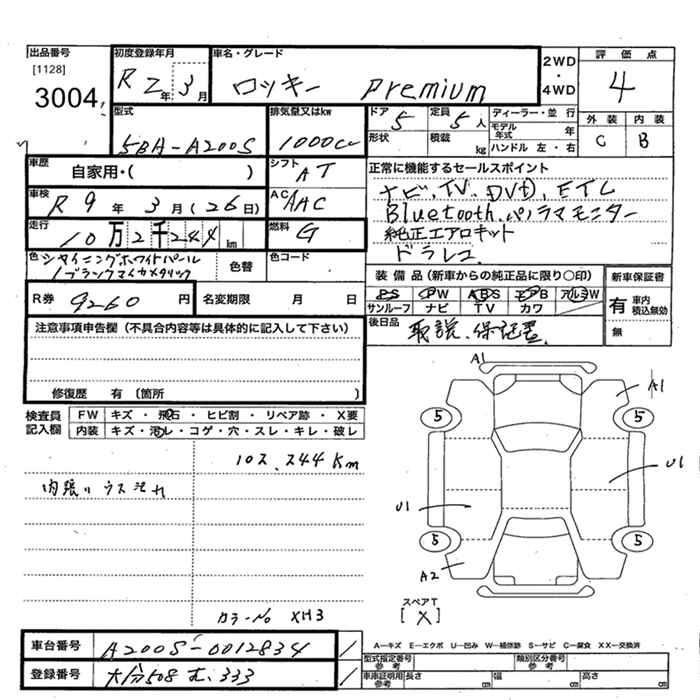 出品番号
[1128]
3004
初度登録年月
R 2年 3月
車名・グレード
ロッキー Premium
2WD
・
4WD
評価点
4
型式
5BA-A200S
排気量又はkw
1000cc
ドア
5
定員
5人
形状
積載
kg
ディーラー・並行
モデル年式 年
ハンドル 左・右
外装 内装
C B
車歴
自家用・( )
シフト
AT
車検
R 9年 3月(26日)
AC
AAC
走行
10万2千244km
燃料
G
正常に機能するセールスポイント
ナビ、TV、DVD、ETC
Bluetooth、パノラマモニター
純正エアロキット
ドラレコ
色
シャイニングホワイトパール
/ブラックマイカメタリック
色替
色コード
R券 9260円
名変期限 月 日
装備品(新車からの純正品に限り○印)
PS PW ABS エアB アルミW
サンルーフ ナビ TV カワ
新車保証書
有 車内積込無効
無
後日品
取説、保証書
注意事項申告欄(不具合内容等は具体的に記入して下さい)
修復歴 有(箇所 )
検査員記入欄
FW キズ・飛石・ヒビ割・リペア跡・X要
内装 キズ・汚レ・コゲ・穴・スレ・キレ・破レ
102,244Km
内張りウス汚れ
カラーNo XH3
A1
A1
5 5
U1
U1
5 5
A2
スペアT
[X]
車台番号 A200S-0012834
登録番号 大分508 む 333
A—キズ E—エクボ U—凹み W—補修跡 S—サビ C—腐食 XX—交換済
型式指定番号 参考
類別区分番号 参考
車庫証明用 参考
長さ cm 幅 cm 高さ cm